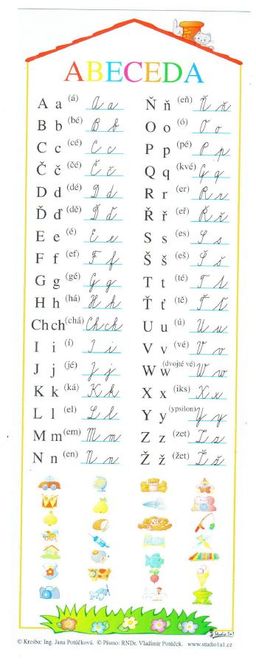 ABECEDA
A a (á) A a
B b (bé) B b
C c (cé) C c
Č č (čé) Č č
D d (dé) D d
Ď ď (ďé) Ď ď
E e (é) E e
F f (ef) F f
G g (gé) G g
H h (há) H h
Ch ch (chá) Ch ch
I i (í) I i
J j (jé) J j
K k (ká) K k
L l (el) L l
M m (em) M m
N n (en) N n
Ň ň (eň) Ň ň
O o (ó) O o
P p (pé) P p
Q q (kvé) Q q
R r (er) R r
Ř ř (eř) Ř ř
S s (es) S s
Š š (eš) Š š
T t (té) T t
Ť ť (ťé) Ť ť
U u (ú) U u
V v (vé) V v
W w (dvojité vé) W w
X x (iks) X x
Y y (ypsilon) Y y
Z z (zet) Z z
Ž ž (žet) Ž ž
© Kresba: Ing. Jana Potůčková. © Písmo: RNDr. Vladimír Potůček. www.studio1a1.cz